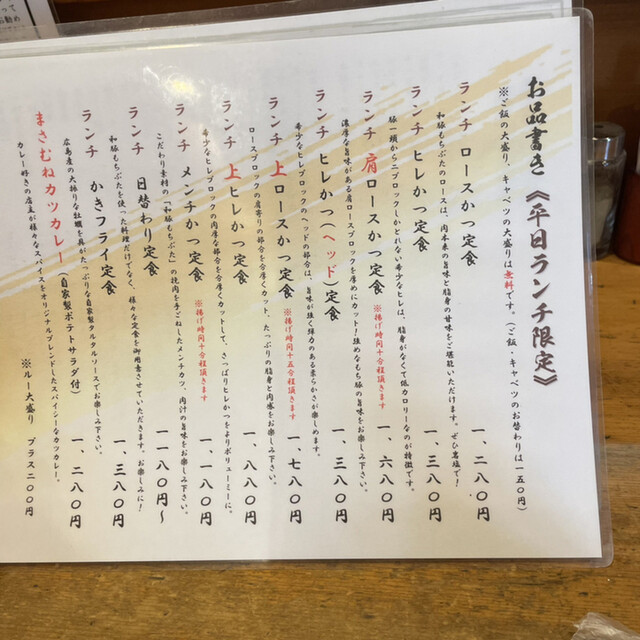 お品書き《平日ランチ限定》
※ご飯の大盛り、キャベツの大盛りは無料です。(ご飯・キャベツのお替わりは一五〇円)
ランチ ロースかつ定食 一、二八〇円
和豚もちぶたのロースは、肉本来の旨味と脂身の甘味をご堪能いただけます。ぜひ岩塩で!
ランチ ヒレかつ定食 一、三八〇円
豚一頭から二ブロックしかとれない希少なヒレは、脂身がなくて低カロリーなのが特徴です。
ランチ 肩ロースかつ定食 ※揚げ時間十分程頂きます 一、六八〇円
濃厚な旨味がある肩ロースブロックを厚めにカット!強めなもち豚の旨味をお楽しみ下さい。
ランチ ヒレかつ(ヘッド)定食 一、三八〇円
希少なヒレブロックのヘッドの部分は、旨味が強く弾力のある柔らかさが楽しめます。
ランチ 上ロースかつ定食 ※揚げ時間十五分程頂きます 一、七八〇円
ロースブロックの肩寄りの部分を分厚くカット、たっぷりの脂身と肉感をお楽しみ下さい。
ランチ 上ヒレかつ定食 一、八八〇円
希少なヒレブロックの肉厚な部分を分厚くカットして、さっぱりヒレかつをよりボリューミーに。
ランチ メンチかつ定食 ※揚げ時間十分程頂きます 一、一八〇円
こだわり素材の「和豚もちぶた」の挽肉を手ごねしたメンチカツ、肉汁の旨味をお楽しみ下さい。
ランチ 日替わり定食 一、一八〇円〜
和豚もちぶたを使った料理だけでなく、様々な定食を御用意させていただきます。お楽しみに!
ランチ かきフライ定食 一、三八〇円
広島産の大粒な牡蠣を具がたっぷりな自家製タルタルソースでお楽しみ下さい。
まさむねカツカレー(自家製ポテトサラダ付) 一、二八〇円
カレー好きの店主が様々なスパイスをオリジナルブレンドしたスパイシーなカツカレー。
※ルー大盛り プラス二〇〇円